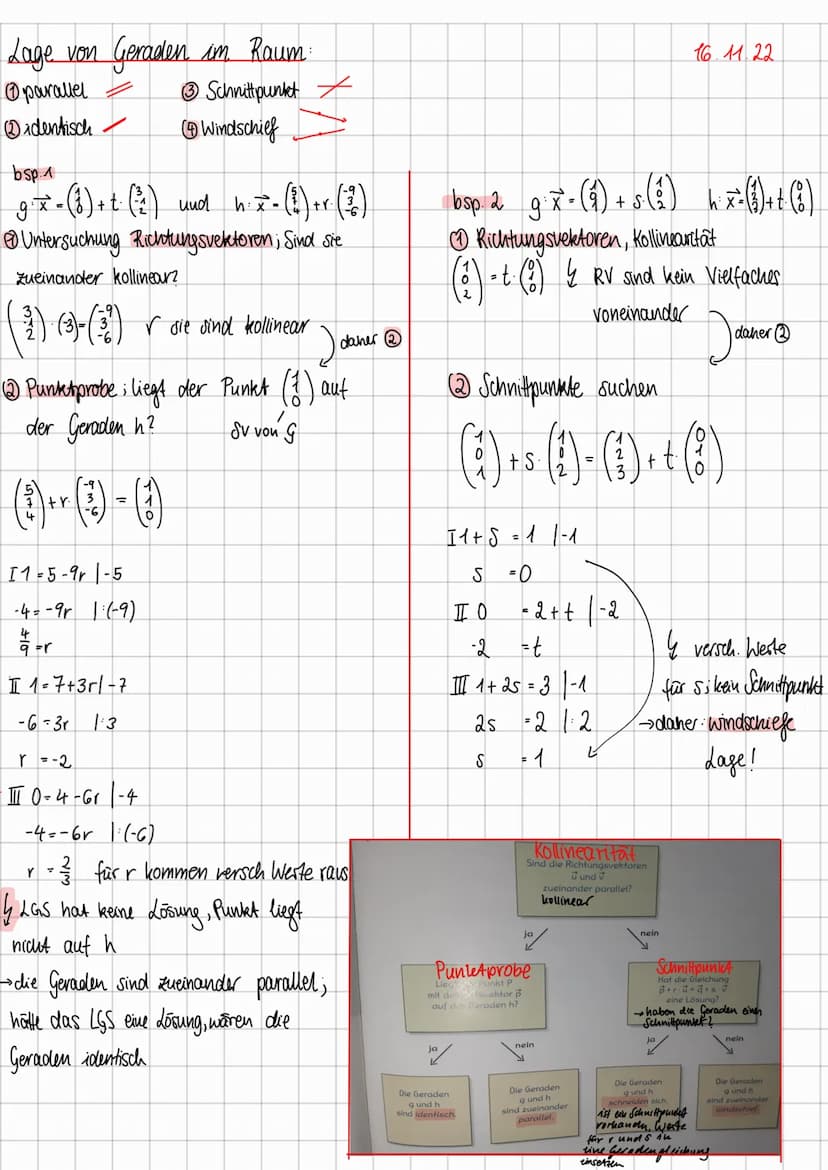 Lage von Geraden im Raum:
16.11.22
① parallel
③ Schnittpunkt
② identisch
④ Windschief
bsp.1
g:x⃗ = (1 1 0) + t·(3 -1 2) und h:x⃗ = (5 7 4) + r·(-9 3 -6)
① Untersuchung Richtungsvektoren; Sind sie
zueinander kollinear?
(3 -1 2)·(-3) = (-9 3 -6) sie sind kollinear
daher ②
② Punktprobe; liegt der Punkt (1 1 0) auf
der Geraden h? SV von g
(5 7 4) + r·(-9 3 -6) = (1 1 0)
I 1 = 5 -9r |-5
-4 = -9r |:(-9)
4/9 = r
II 1 = 7+3r | -7
-6 = 3r |:3
r = -2
III 0 = 4 -6r |-4
-4 = -6r |:(-6)
r = 2/3 für r kommen versch Werte raus
↯ LGS hat keine Lösung, Punkt liegt
nicht auf h
→ die Geraden sind zueinander parallel;
hätte das LGS eine Lösung, wären die
Geraden identisch
bsp.2 g:x⃗ = (1 0 1) + s·(1 0 2) h:x⃗ = (1 2 3) + t·(0 1 0)
① Richtungsvektoren, Kollinearität
(1 0 2) = t·(0 1 0) ↯ RV sind kein Vielfaches
voneinander
daher ②
② Schnittpunkte suchen
(1 0 1) + s·(1 0 2) = (1 2 3) + t·(0 1 0)
I 1+s = 1 |-1
s = 0
II 0 = 2+t |-2
-2 = t
III 1+2s = 3 |-1
2s = 2 |:2
s = 1
↯ versch. Werte
für s; kein Schnittpunkt
→ daher: windschiefe
Lage!
Kollinearität
Sind die Richtungsvektoren
u⃗ und v⃗
zueinander parallel?
kollinear
ja
nein
Punktprobe
Liegt Punkt P
mit dem p⃗
auf der Geraden h?
Schnittpunkt
Hat die Gleichung
p⃗+r·u⃗=q⃗+s·v⃗
eine Lösung?
→ haben die Geraden einen
Schnittpunkt?
ja
nein
ja
nein
Die Geraden
g und h
sind identisch.
Die Geraden
g und h
sind zueinander
parallel.
Die Geraden
g und h
schneiden sich.
ist ein Schnittpunkt
vorhanden, Werte
für r und s in
eine Geradengleichung
einsetzen
Die Geraden
g und h
sind zueinander
windschief.